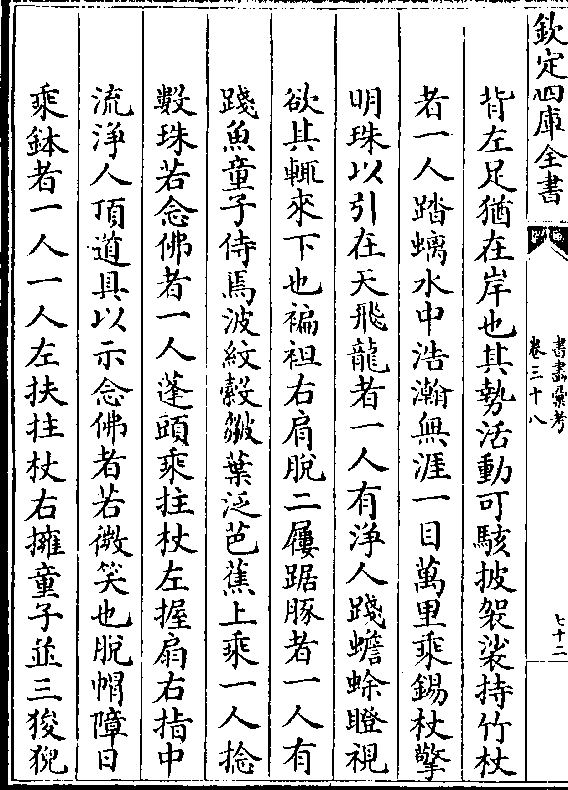 欽定四庫全書
書畫彙考
卷三十八
七十二
背左足猶在岸也其勢活動可駭披袈裟持竹杖
者一人踏螭水中浩瀚無涯一目萬里乘錫杖擎
明珠以引在天飛龍者一人有淨人踐蟾蜍瞪視
欲其輒來下也褊袒右肩脫二屨踞豚者一人有
踐魚童子侍焉波紋縠皺葉泛芭蕉上乘一人捻
數珠若念佛者一人蓬頭乘拄杖左握扇右指中
流淨人頂道具以示念佛者若微笑也脫帽障日
乘鉢者一人一人左扶拄杖右擁童子並三狻猊